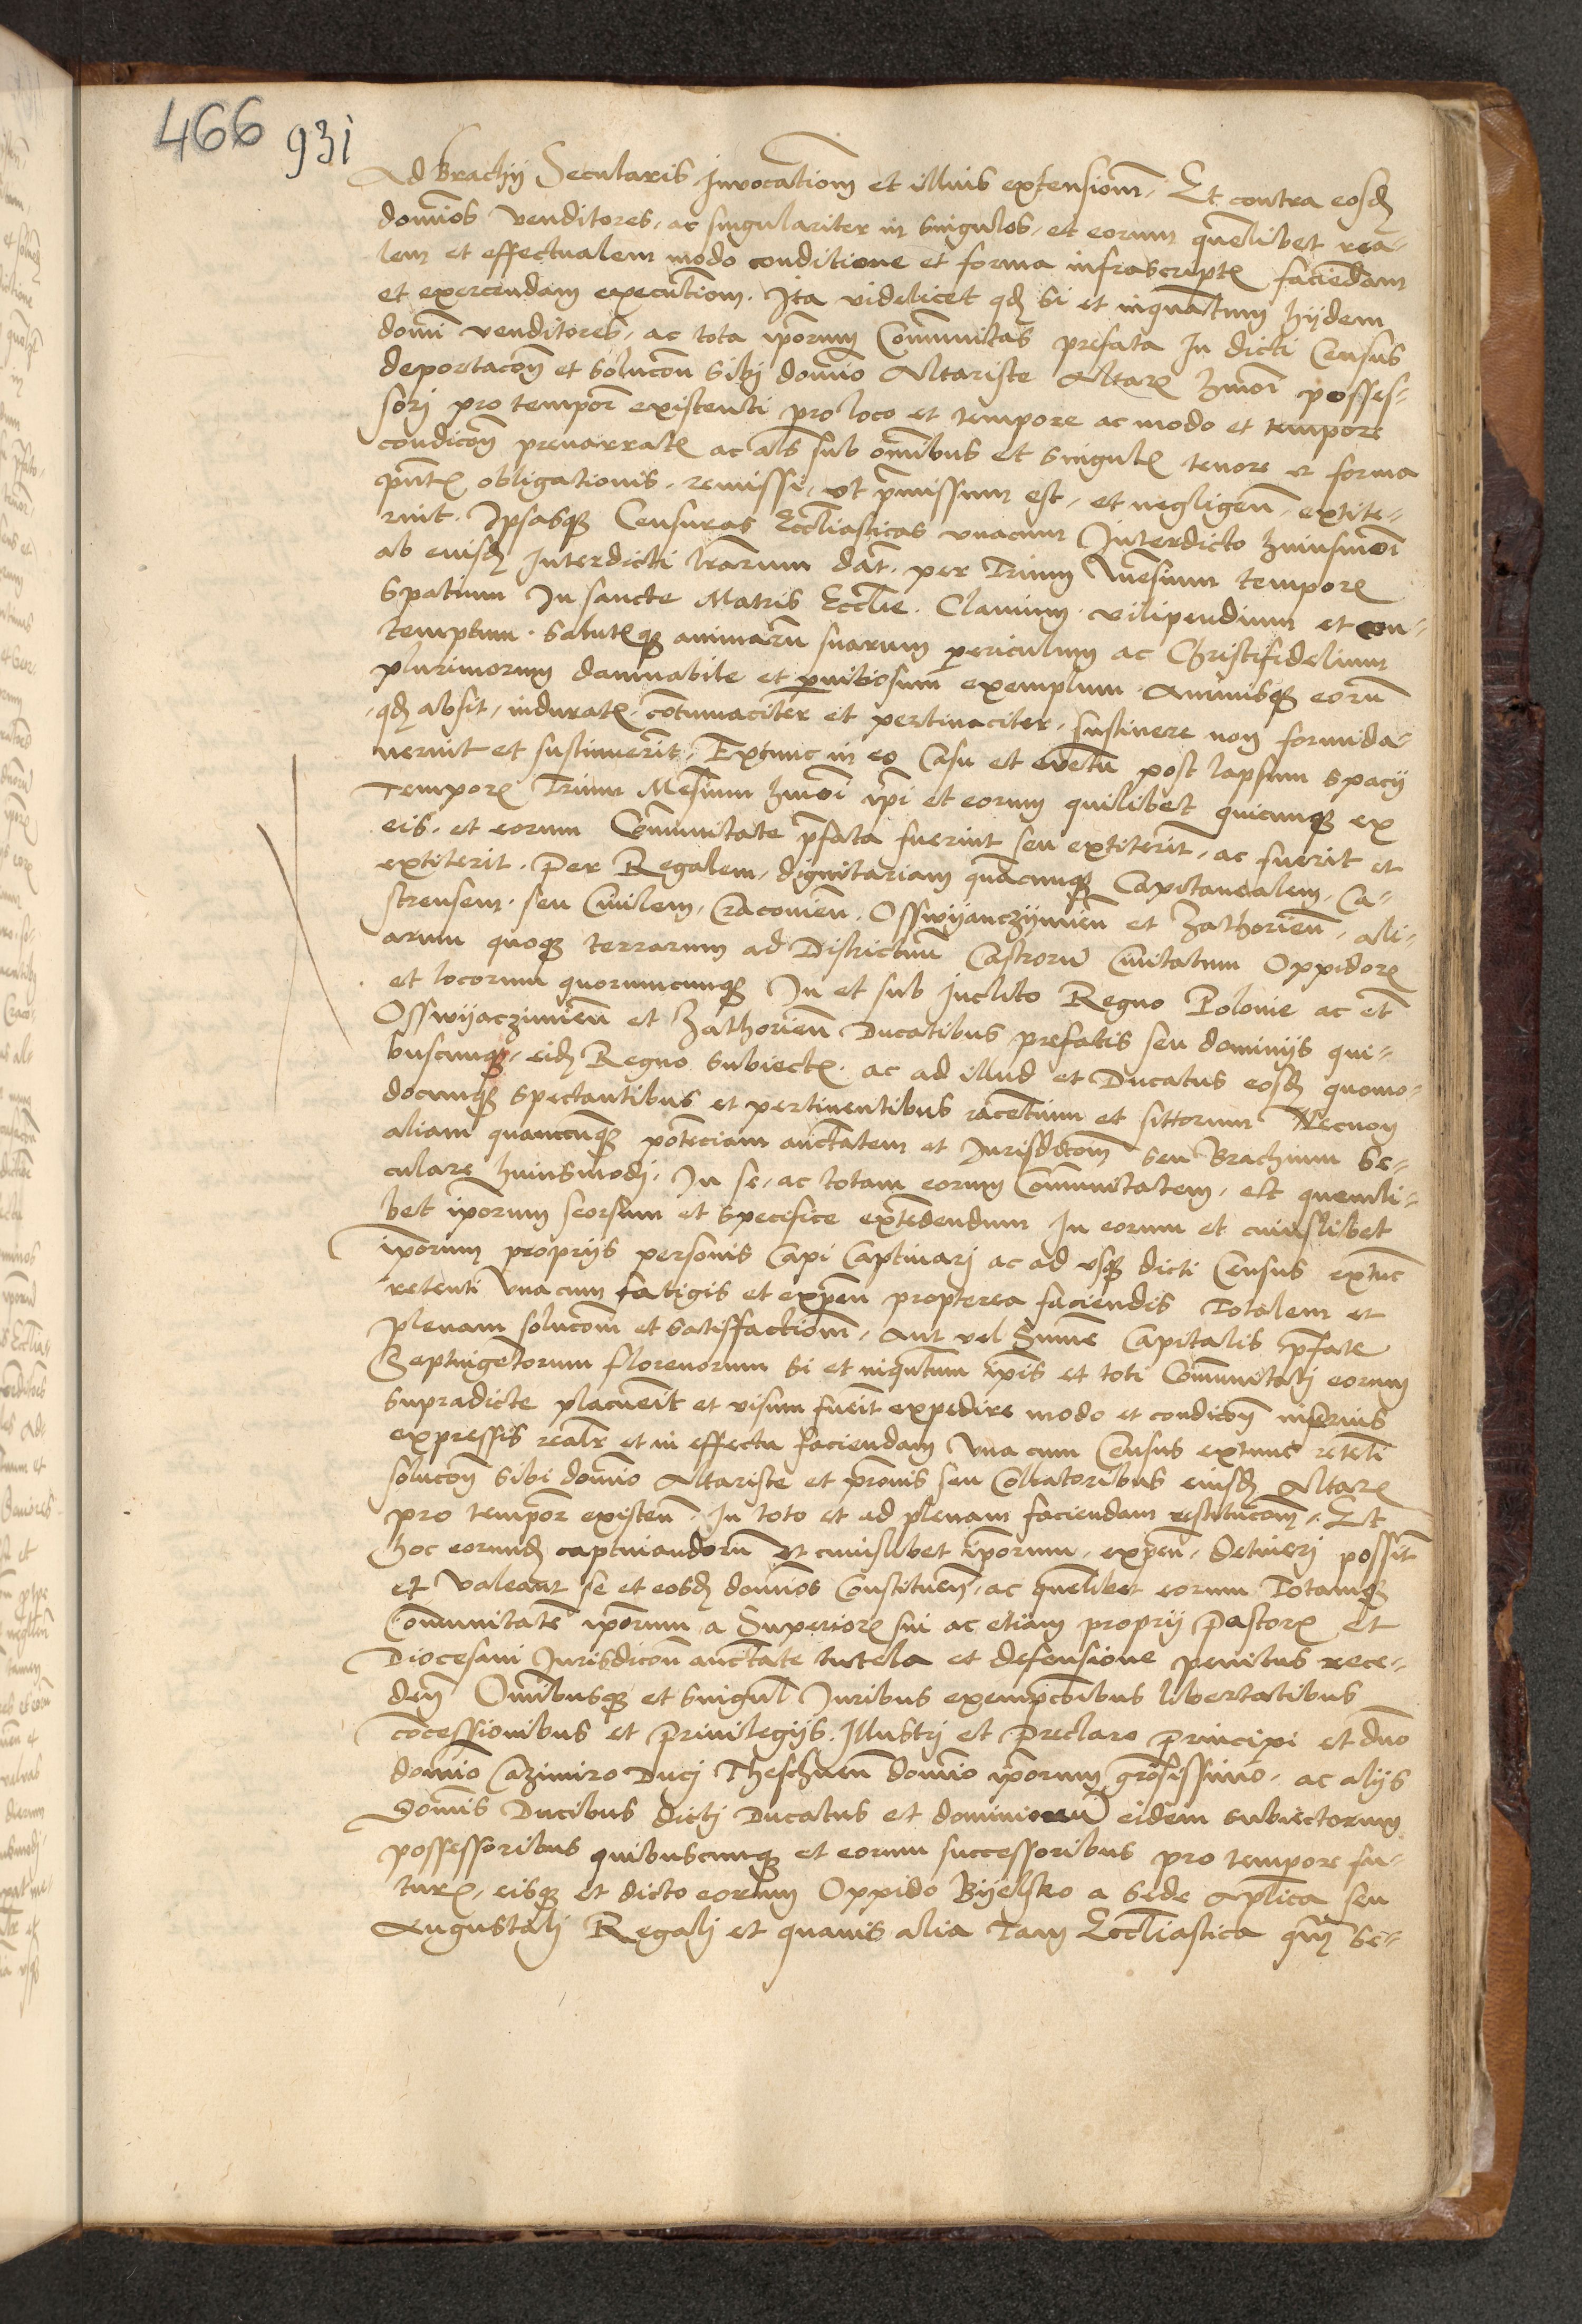 466 931
Ad Brachij Secularis Invocationem et illius extensionem. Et contra eosdem
dominos venditores, ac singulariter in singulos, et eorum quemlibet rea-
lem et effectualem modo conditione et forma infrascriptis faciendam
et exercendam executionem. Ita videlicet quod si et inquantum hijdem
domini venditores, ac tota ipsorum Communitas prefata In dicti Census
deportacionem et solucionem sibi domino Altariste Altaris huiusmodi posses-
sori pro tempore existenti pro loco et tempore ac modo et tempore
condicione prenarratis ac alias sub omnibus et singulis tenore et forma
presentis obligationis, remissi, vt premissum est, et negligentes, extite-
rint. Ipsasque Censuras Ecclesiasticas vnacum Interdicto huiusmodi
ab eiusdem Interdicti literarum dato per Trium Mensium temporis
spatium In sancte Matris Ecclesie. Clavium vilipendium et con-
temptum. salutisque animarum suarum periculum ac Christifidelium
plurimorum damnabile et pernitiosum exemplum. Animisque eorum
quod absit, induratis, contumaciter et pertinaciter, sustinere non formida-
verint et sustinuerint. Extunc in eo Casu et eventu post lapsum spacij
Temporis Trium Mensium huiusmodi ipsi et eorum quilibet quicunque ex
eis, et eorum Communitate prefata fuerint seu extiterint, ac fuerit et
extiterit. Per Regalem, dignitariam quamcunque Capitanealem, Ca-
strensem, seu Civilem, Cracovien. Osswijanczymien et Zathorien, ali-
arum quoque terrarum ad Districtum Castrorum Civitatum Oppidorum
et locorum quorumcunque In et sub Inclito Regno Polonie ac etiam
Osswijaczimien et Zathorien Ducatibus prefatis seu dominijs qui-
buscunque, eidem Regno subiectis. ac ad illud et Ducatus eosdem quomo-
docunque spectantibus et pertinentibus iacentium et sittorum Necnon
aliam quamcunque potenciam auctoritatem et Jurisdictionem seu Brachium Se-
culare huiusmodi, In se, ac totam eorum Communitatem, et quemli-
bet ipsorum seorsum et specifice extendendum In eorum et cuiuslibet
ipsorum proprijs personis Capi Captivari ac ad vsque dicti Census extunc
retenti vna cum fatigis et expensis propterea faciendis Totalem et
plenam solucionem et satisfactionem. Aut vel Summe Capitalis prefate
Septuigentorum florenorum Si et inquantum ipsis et toti Communitati eorum
supradicte placuerit et visum fuerit expedire modo et condicione inferius
expressis realiter et in effectu faciendam Vna cum Census extunc retenti
solucione sibi domino Altariste et patronis seu Collatoribus eiusdem Altaris
pro tempore existentibus, In toto et ad plenam faciendam restitucionem. Et
hoc eorundem captivandorum et cuiuslibet ipsorum, expensis, Detineri possint
et valeant se et eosdem dominos Constituentes, ac quemlibet eorum Totamque
Communitatem ipsorum a Superioris sui ac etiam proprij Pastoris et
Diocesani Jurisdicione auctoritate tutela et defensione penitus rece-
den Omnibusque et singulis Juribus exempcionibus libertatibus
concessionibus et Privilegijs. Illustri et Preclaro Principi et domino
domino Cazimiro Duci Theschnensi domino ipsorum graciosissimo, ac alijs
dominis Ducibus dicti Ducatus et dominiorum eidem subiectorum
possessoribus quibuscunque et eorum successoribus pro tempore fu-
turis, eisque et dicto eorum Oppido Bijelsko a Sede Apostolica seu
Augustali Regali et quavis alia Tam Ecclesiastica quam Se-